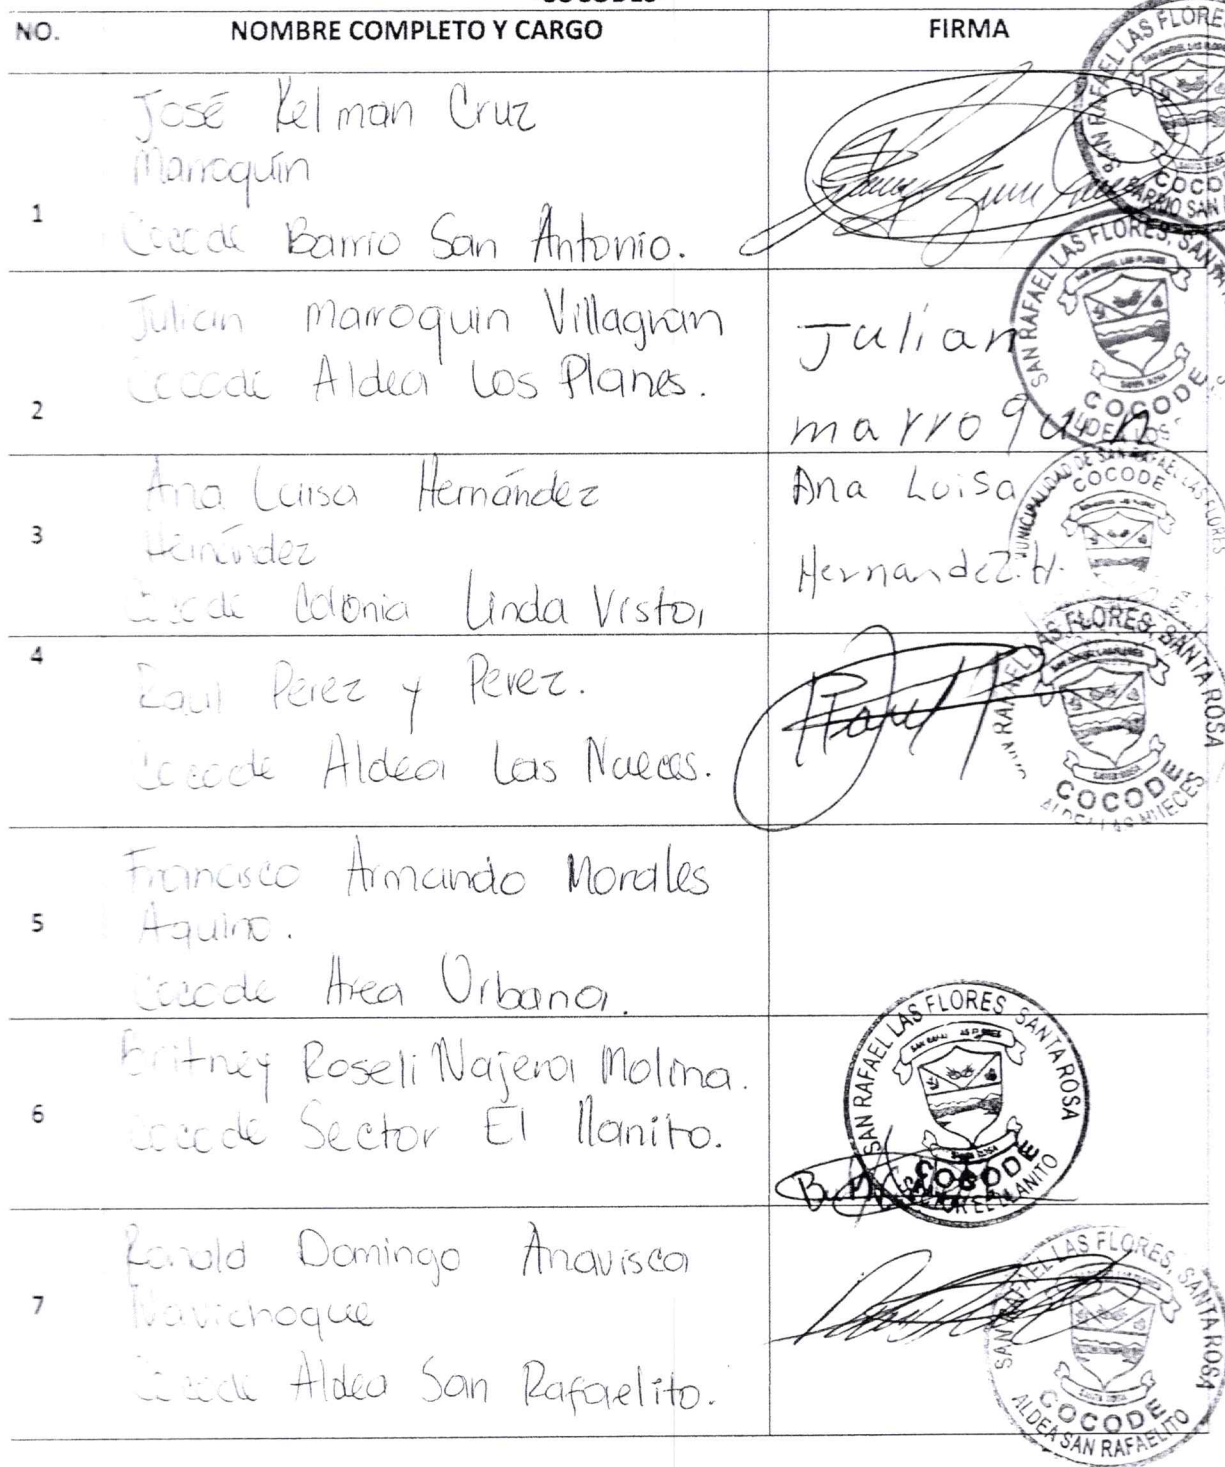 NO. NOMBRE COMPLETO Y CARGO FIRMA
José Kelman Cruz
Marroquín
1
Cocode Barrio San Antonio.
SAN RAFAEL LAS FLORES
COCODE
BARRIO SAN
Julian Marroquin Villagran
Cocode Aldea Los Planes.
2
Julian
marroquin
SAN RAFAEL LAS FLORES, SANTA
COCODE
ALDEA LOS
Ana Luisa Hernández
3
Hernández
Cocode Colonia Linda Vista
Ana Loisa
Hernandez.H.
MUNICIPALIDAD DE SAN RAFAEL LAS FLORES
COCODE
4
Raul Perez y Perez.
Cocode Aldea Las Nueces.
Raul P
SAN RAFAEL LAS FLORES, SANTA ROSA
COCODE
ALDEA LAS NUECES
Francisco Armando Morales
5
Aquino.
Cocode Area Urbana.
Britney Roseli Najera Molina.
6
Cocode Sector El llanito.
SAN RAFAEL LAS FLORES SANTA ROSA
COCODE
SECTOR EL LLANITO
Ronald Domingo Anavisca
7
Navichoque
Cocode Aldea San Rafaelito.
SAN RAFAEL LAS FLORES, SANTA ROSA
COCODE
ALDEA SAN RAFAELITO